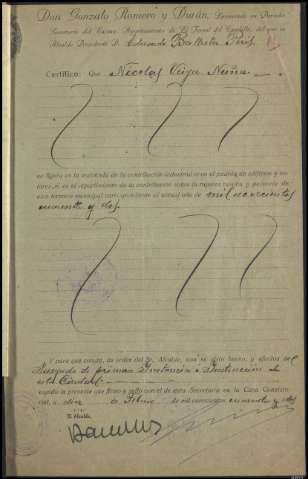 Don Gonzalo Romero y Durán, Licenciado en Derecho
Secretario del Excmo. Ayuntamiento de El Ferrol del Caudillo, del que es
Alcalde Presidente D. Eduardo Ballester
Certifico: Que Nicolas Veiga Nuñez
no figura en la matrícula de la contribución industrial ni en el padrón de edificios y so-
lares, ni en el repartimiento de la contribución sobre la riqueza rústica y pecuaria de
este término municipal correspondiente al actual año de mil novecientos
cuarenta y dos.
Y para que conste, de orden del Sr. Alcalde, con su visto bueno, y efectos del
Juzgado de primera Instancia e Instrucción de
esta Ciudad
expido la presente que firmo y sello con el de esta Secretaría en la Casa Consisto-
rial, a diez de mil novecientos cuarenta y dos
El Alcalde,